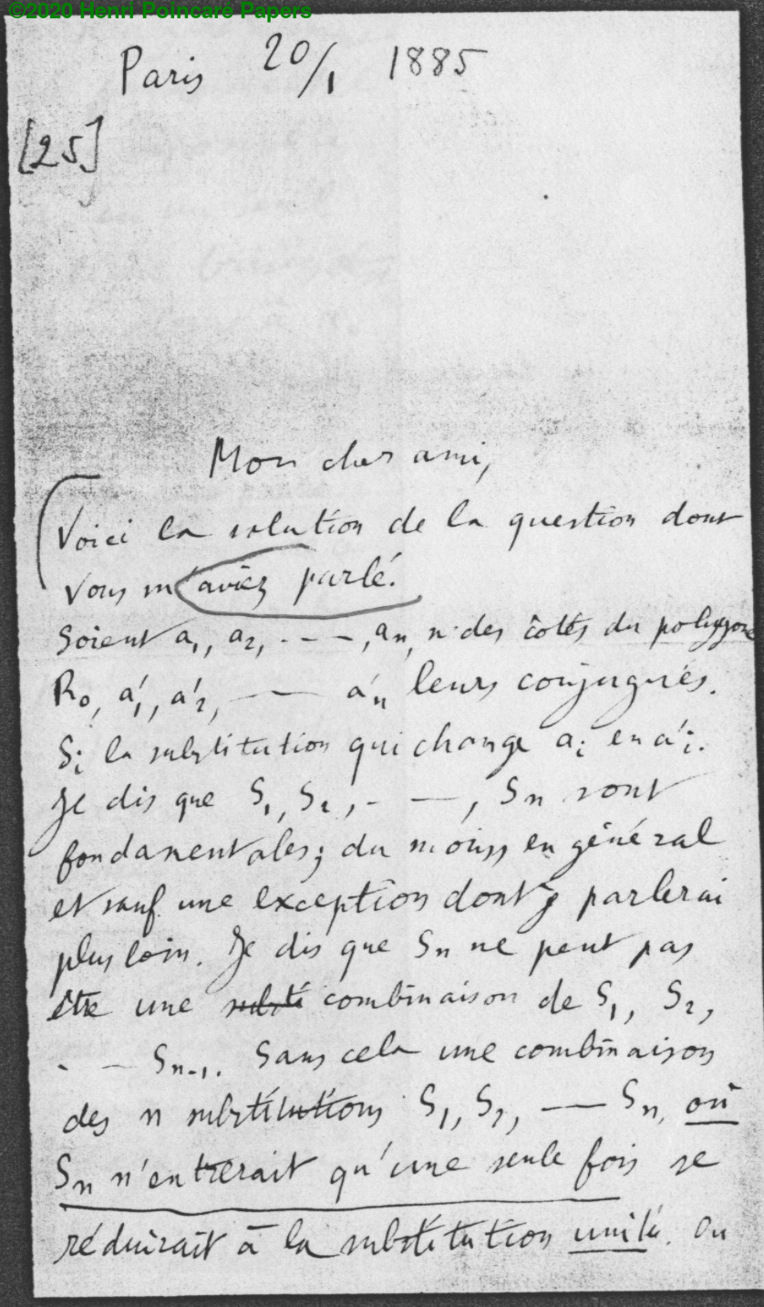 ©2020 Henri Poincaré Papers
Paris 20/1 1885
[25]
Mon cher ami,
Voici la solution de la question dont
vous m'aviez parlé.
Soient a₁, a₂, - - —, aₙ, n des côtés du polygone
R₀, a'₁, a'₂, — a'ₙ leurs conjugués.
Sᵢ la substitution qui change aᵢ en a'ᵢ.
Je dis que S₁, S₂, - —, Sₙ sont
fondamentales; du moins en général
et sauf une exception dont je parlerai
plus loin. Je dis que Sₙ ne peut pas
être une substi combinaison de S₁, S₂,
- — Sₙ₋₁. Sans cela une combinaison
des n substitutions S₁, S₂, — Sₙ, où
Sₙ n'entrerait qu'une seule fois se
réduirait à la substitution unité. Ou